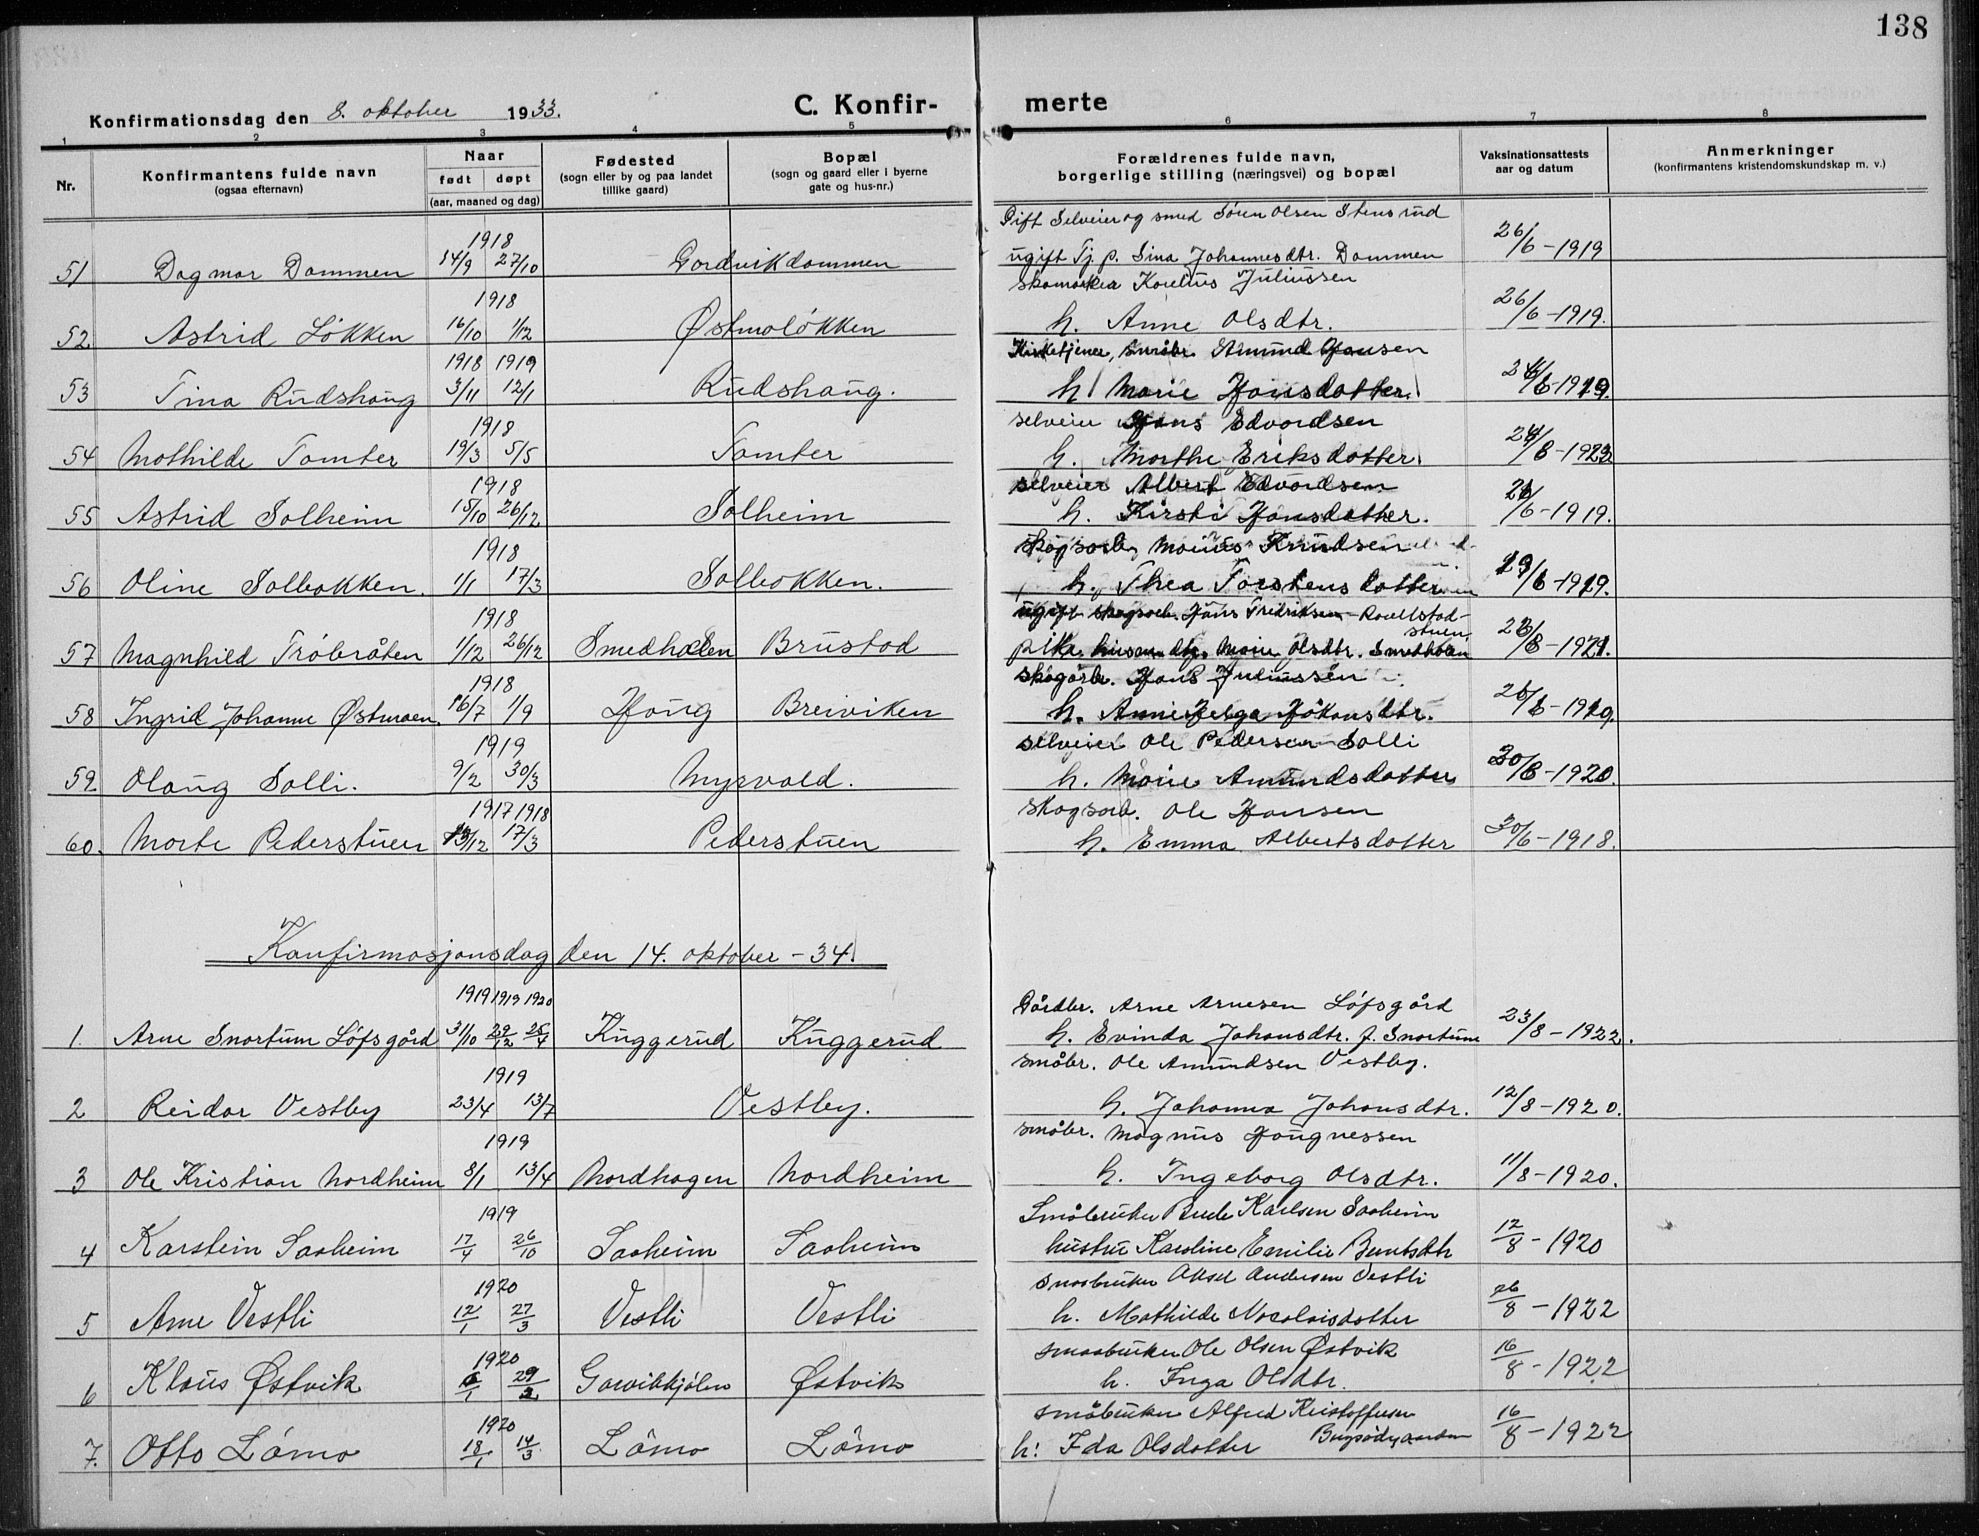 138
Konfirmationsdag den 8. oktober 1933.
C. Konfir- merte
1 2 3 4 5 6 7 8
Nr.
Konfirmantens fulde navn
(ogsaa efternavn)
Naar
født døpt
(aar, maaned og dag)
Fødested
(sogn eller by og paa landet
tillike gaard)
Bopæl
(sogn og gaard eller i byerne
gate og hus-nr.)
Forældrenes fulde navn,
borgerlige stilling (næringsvei) og bopæl
Vaksinationsattests
aar og datum
Anmerkninger
(konfirmantens kristendomskundskap m. v.)
1918 Gift Selveier og smed Søren Olsen Stensrud
51 Dagmar Dammen 14/9 27/10 Gardvikdammen ugift Tj. p. Sina Johannesdtr. Dammen 26/6-1919
1918 skomaker Kornelius Juliussen
52 Astrid Løkken 16/10 1/12 Østmoløkken h. Anne Olsdtr. 26/6-1919.
1918 1919 Kirketjener, småbr. Amund Hansen
53 Tina Rudshaug 3/11 12/1 Rudshaug. h. Marie Hansdatter. /6-1919.
1918 selveier Hans Edvardsen
54 Mathilde Tomter 19/3 5/5 Tomter h. Marthe Eriksdatter. /8-1923
1918 selveier Albert Edvardsen
55 Astrid Solheim 15/10 26/12 Solheim h. Kirsti Hansdatter. /6-1919.
1918 skogsarb. Marius Knudsen
56 Oline Solbakken. 1/1 17/3 Solbakken. h. Thea Torstensdatter /6-1919.
1918 ugift skogsarb. Hans Fredriksen - stuen,
57 Magnhild Trøbråten 1/12 26/12 Smedhølen Brustad pike Marie Olsdtr. Smedhølen /8-1921.
1918 skogarb. Hans Juliussen
58 Ingrid Johanne Østmoen. 16/7 1/9 Haug Breiviken h. Anne Helga Håkansdtr. /6-1919.
1919 selveier Ole Pedersen Solli
59. Olaug Solli. 9/2 30/3 Myrvold. h. Marie Amundsdatter 30/8-1920.
1917 1918 skogsarb. Ole Hansen
60. Marte Pederstuen 13/12 17/3 Pederstuen h. Emma Albertsdatter 30/6-1918.
Konfirmasjonsdag den 14. oktober - 34.
1919 1919 1920 Gårdbr. Arne Arnesen Løfsgård
1. Arne Snortum Løfsgård 31/10 29/12 25/4 Kuggerud Kuggerud h. Evinda Johansdtr. f. Snortum 23/8-1922.
1919 småbr. Ole Amundsen Vestby.
2 Reidar Vestby 23/4 13/7 Vestby. h. Johanna Johansdtr. 12/8-1920.
1919 småbr. Magnus Haugnessen
3 Ole Kristian Nordheim 8/1 13/4 Nordhagen Nordheim h. Ingeborg Olsdtr. 11/8-1920.
1919 Småbruker Karlsen Saaheim
4 Karstein Saaheim 17/4 26/10 Saaheim Saaheim hustru Karoline Emilie Berntsdtr 12/8-1920
1920 smaabruker Aksel Andersen Vestli
5 Arne Vestli 12/1 27/3 Vestli Vestli h. Mathilde Nocolaisdatter 26/8-1922
1920 smaabruker Ole Olsen Østvik
6 Klaus Østvik 6/1 29/2 Garvikkjølen Østvik h. Inga Olsdtr. 16/8-1922
1920 småbruker Alfred Kristoffersen
7. Otto Lömo 18/1 14/3 Lömo Lömo h: Ida Olsdatter 16/8-1922